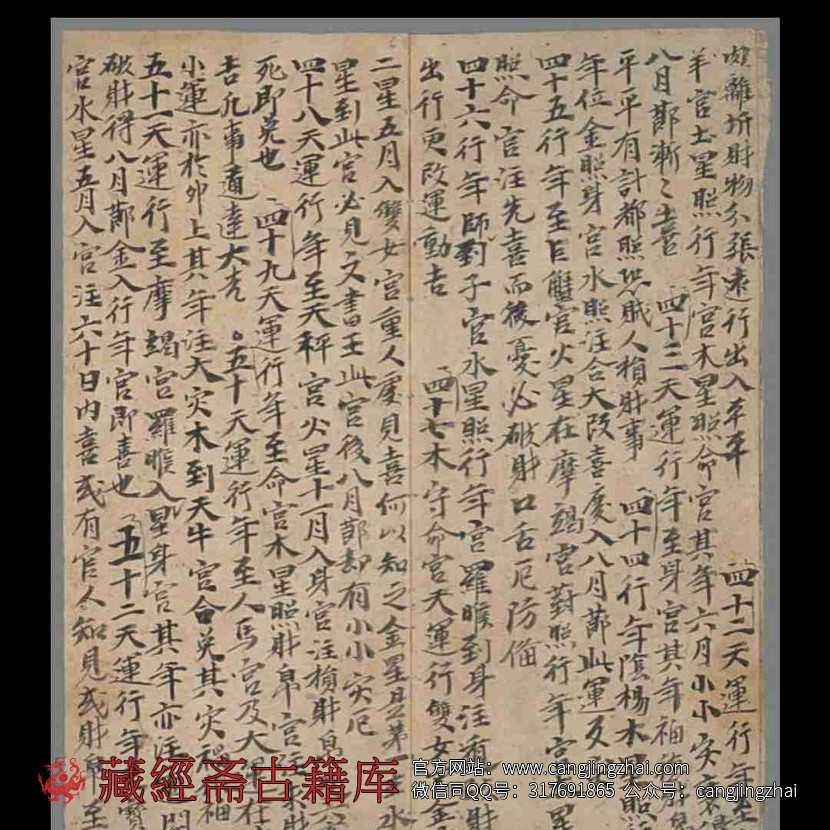 離折財物分張遠行出入平平 四十二天運行年至
羊宮土星照行年宮木星照命宮其年六月小小灾
八月節漸〻喜 四十三天運行年至身宮其年
平平有計都照恐賊人損財事 四十四行年陰楊木
年位金照身宮水照注合大改喜慶入八月節此運及
四十五行年至巨蟹宮火星在摩竭宮對照行年宮
照命宮注先喜而後憂必破財口舌厄防俻
四十六行年師到子宮水星照行年宮羅睺到身注有財
出行更改運動吉 四十七木守命宮天運行雙女
二星五月入雙女宮重人慶見喜何以知之金星是第
星到此宮必見文書王此宮後八月節却有小小灾厄
四十八天運行年至天秤宮火星十一月入身宮注損財帛
死即免也 四十九天運行年至命宮木星照財帛宮
吉凡事通達大吉 五十天運行年至人馬宮及大
小運亦於卯上其年注大灾木到天牛宮會免其灾
五十一天運行至摩竭宮羅睺入星身宮其年亦注
破財得八月節金入行年宮即喜也 五十二天運行年
宮水星五月入宮注六十日内喜或有官人知見或財
藏經斋古籍库
官方网站：www.cangjingzhai.com
微信同QQ号：317691865 公众号：cangjingzhai